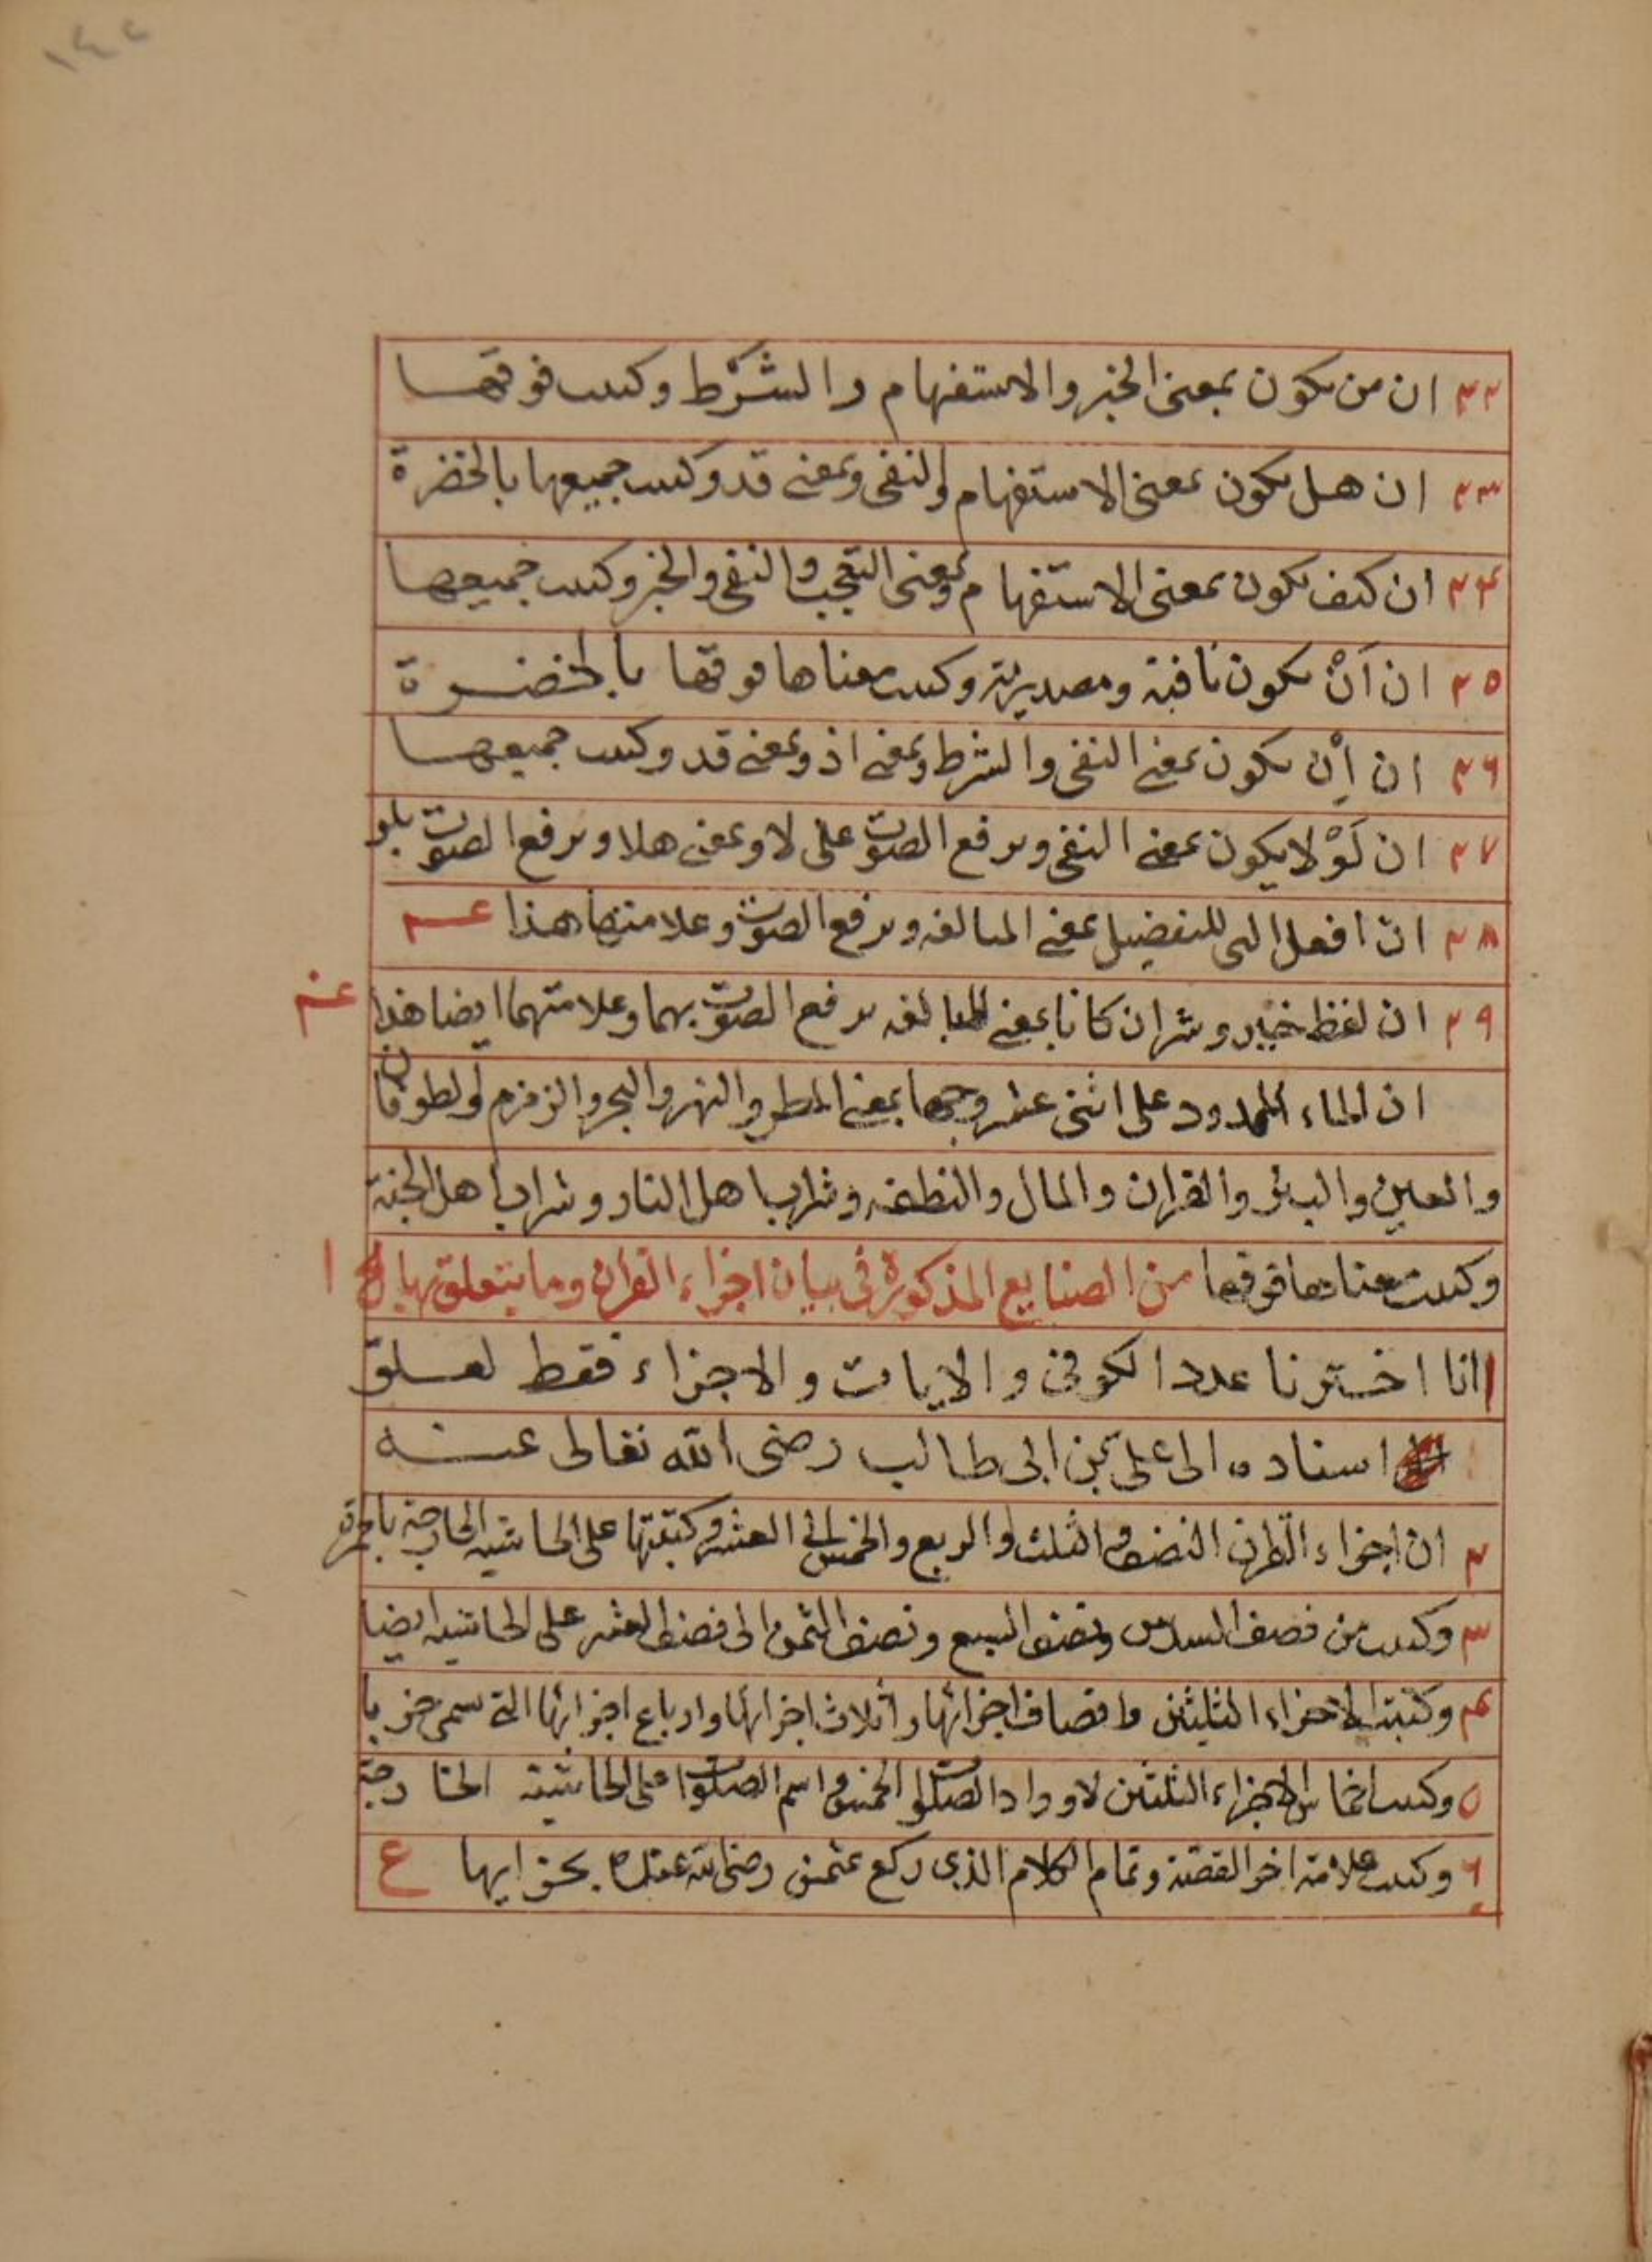 ١٤٢
٢٢ ان من يكون بمعنى الخبر والاستفهام والشرط وكتبت فوقها
٢٣ ان هل يكون بمعنى الاستفهام والنفى وبمعنى قد وكتبت جميعها بالخضرة
٢٤ ان كيف يكون بمعنى الاستفهام وبمعنى التعجب والنفى والخبر وكتبت جميعها
٢٥ ان اَنْ يكون نافية ومصدرية وكتبت معناها فوقها بالخضرة
٢٦ ان اِنْ يكون بمعنى النفى والشرط وبمعنى اذ وبمعنى قد وكتبت جميعها
٢٧ ان لَوْلا يكون بمعنى النفى ويرفع الصوت على لا وبمعنى هلا ويرفع الصوت بلو
٢٨ ان افعل التى للتفضيل بمعنى المبالغه ويرفع الصوت وعلامتها هذا عـم
٢٩ ان لفظ خير وشر ان كانا بمعنى المبالغه يرفع الصوت بهما وعلامتهما ايضا هذا عـم
ان الماء الممدود على اثنى عشر وجها بمعنى المطر والنهر والبحر والزمزم والطوفان
والعين والبئر والقران والمال والنطفه وشراب اهل النار وشراب اهل الجنة
وكتبت معناها فوقها من الصنايع المذكورة فى بيان اجزاء القرأن وما يتعلق بها
١ انا اخترنا عدد الكوفى والايات والاجزاء فقط لعلق
اسناده الى على بن ابى طالب رضى الله تعالى عنه
٢ ان اجزاء القرأن النصف والثلث والربع والخمس الى العشر وكتبتها على الحاشيه الخارجة بالحمرة
٣ وكتبت من نصف السدس ونصف السبع ونصف الثمن الى نصف العشر على الحاشيه ايضا
٤ وكتبت الاجزاء الثلثين وانصاف اجزائها واثلاث اجزائها وارباع اجزائها التى سمى حزبا
٥ وكتبت اخماس الاجزاء الثلثين لاوراد الصلوات الخمس واسم الصلوات على الحاشية الخارجة
٦ وكتبت علامة اخر القصة وتمام الكلام الذى ركع عثمن رضى الله عنه ع